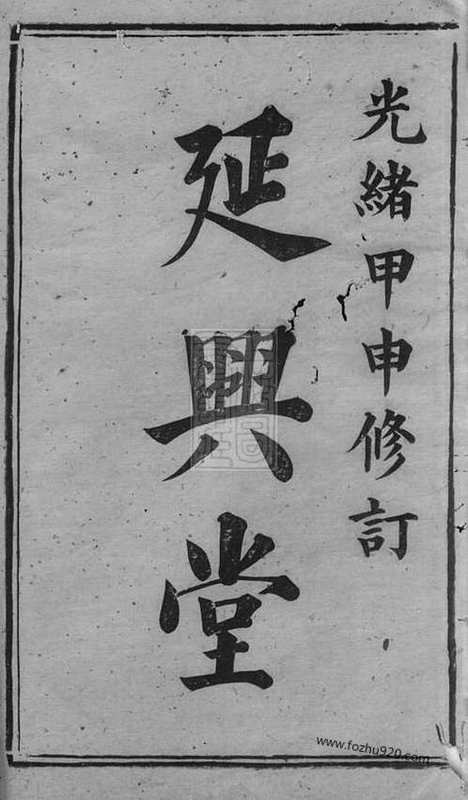 光緒甲申修訂
延興堂
www.fozhu920.com